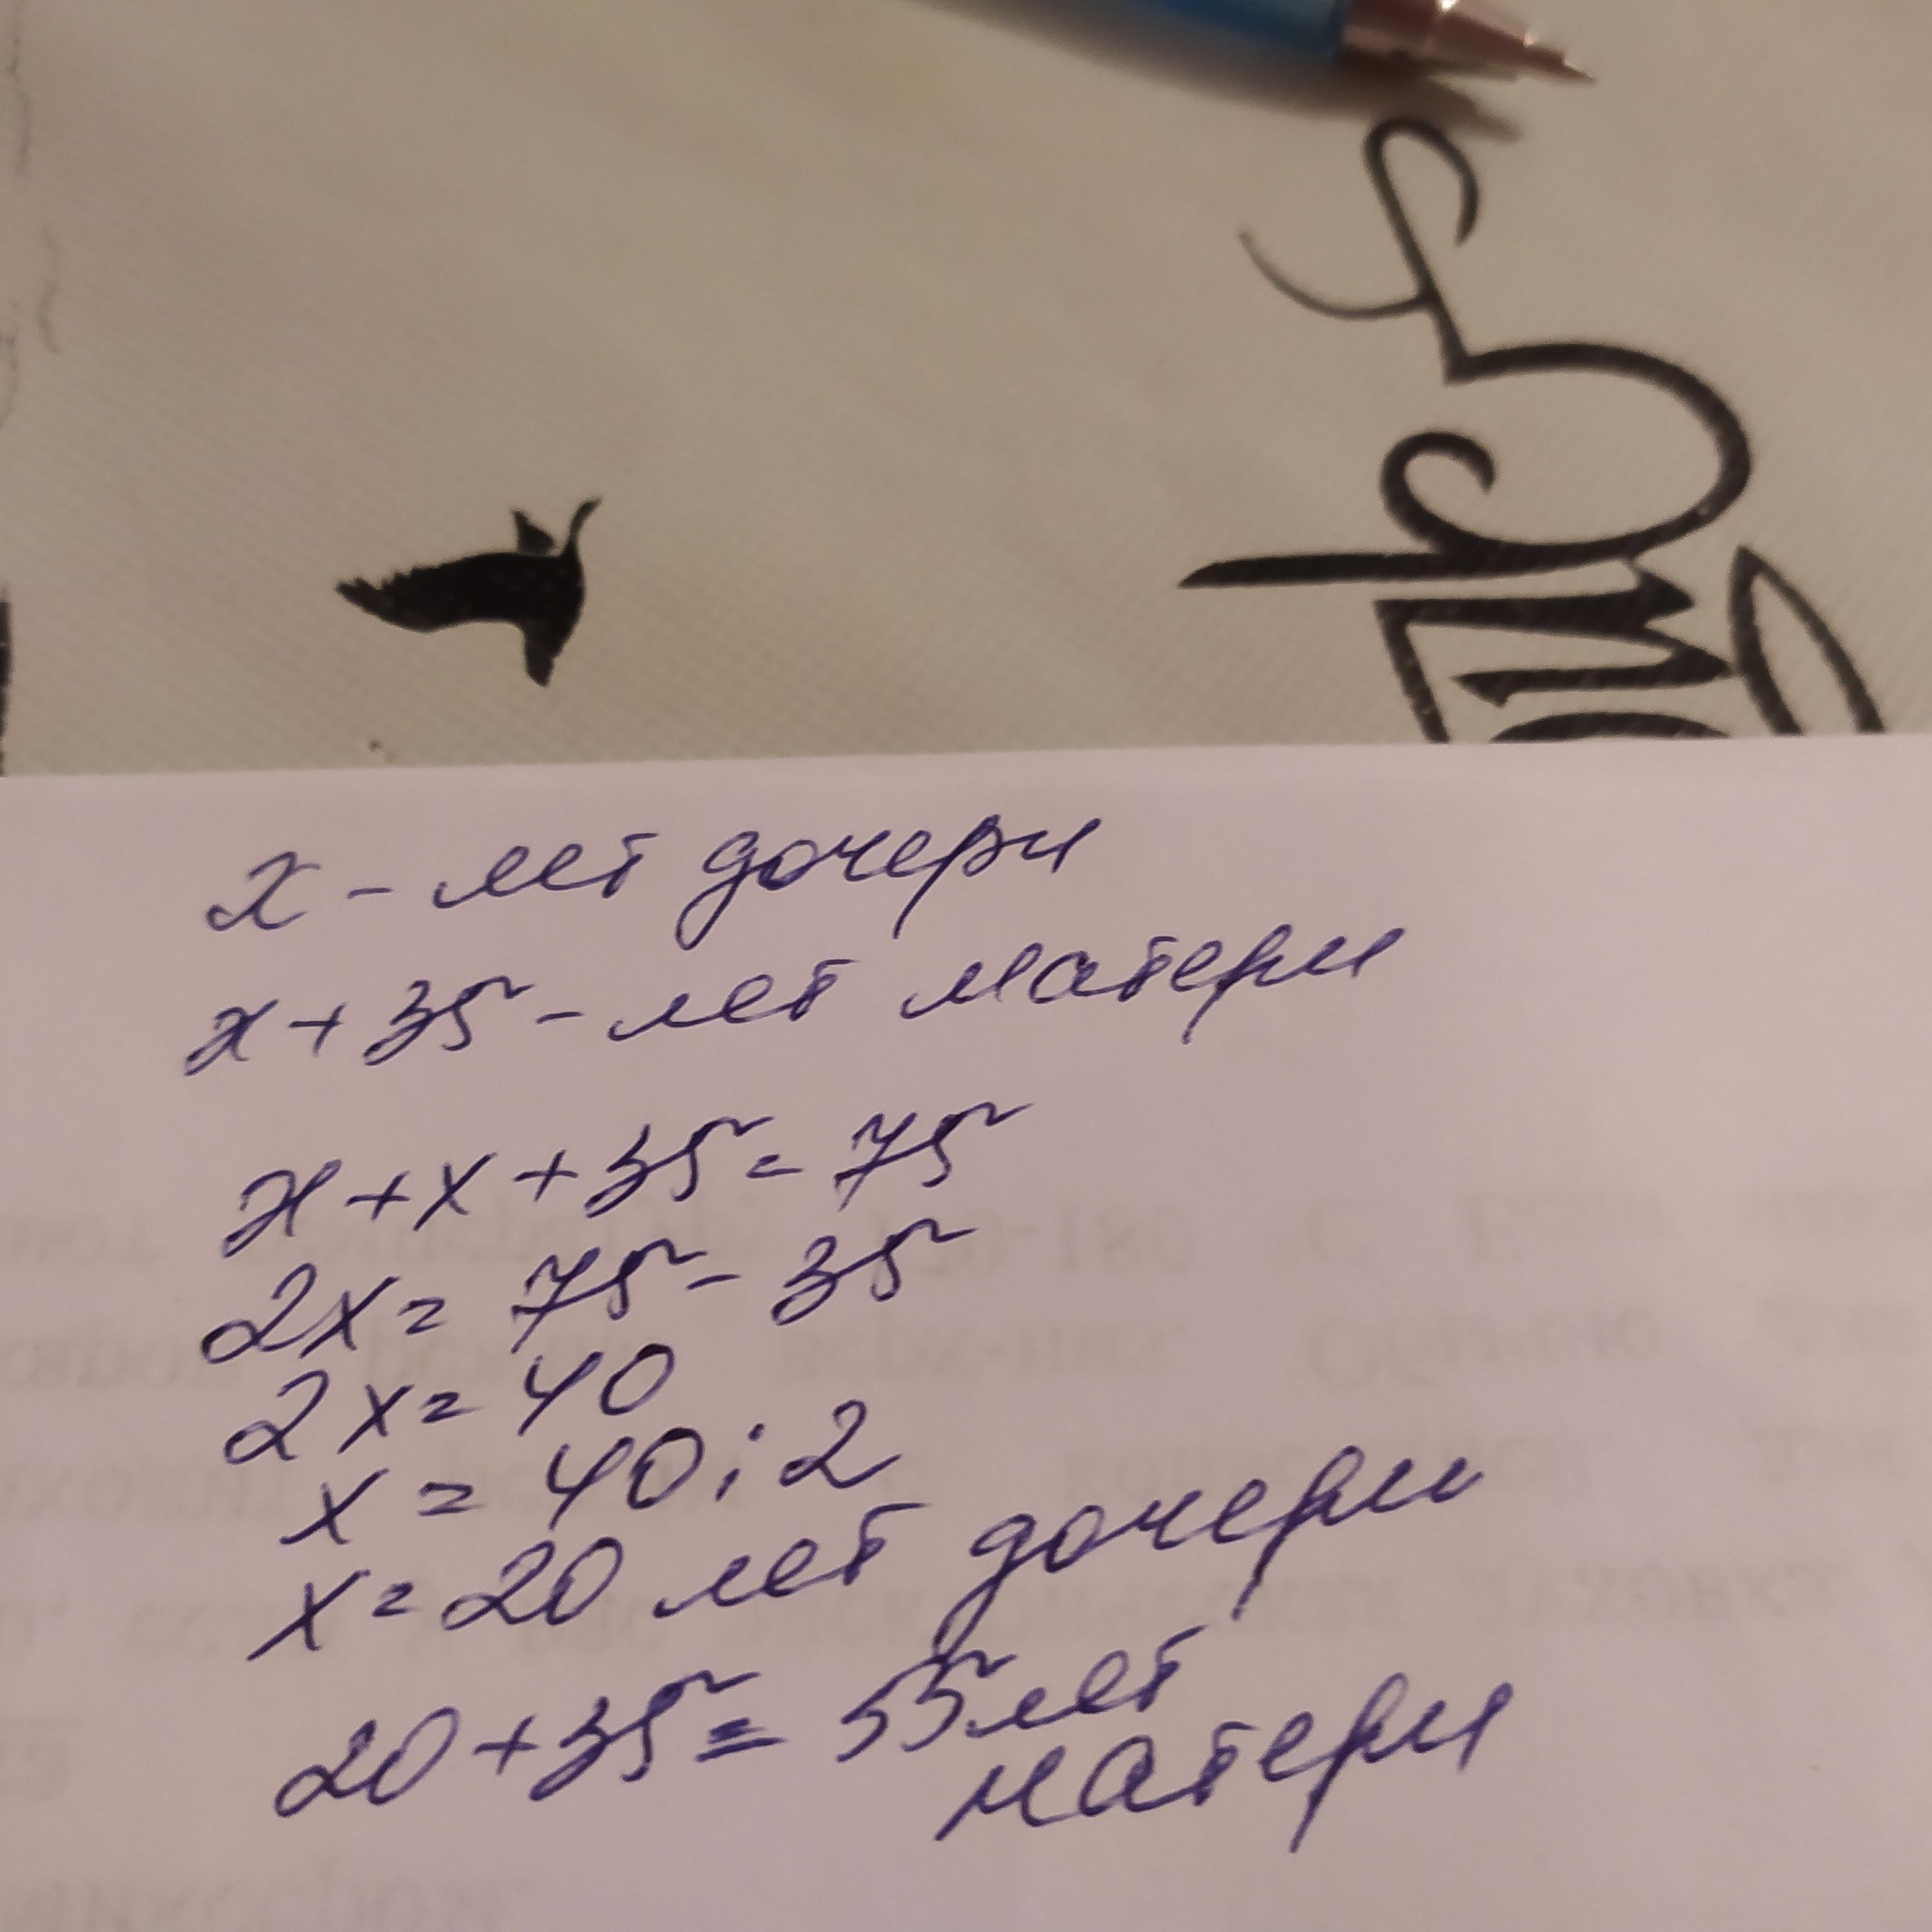 x - лет дочери
x + 35 - лет матери
x + x + 35 = 75
2x = 75 - 35
2x = 40
x = 40 : 2
x = 20 лет дочери
20 + 35 = 55 лет
матери